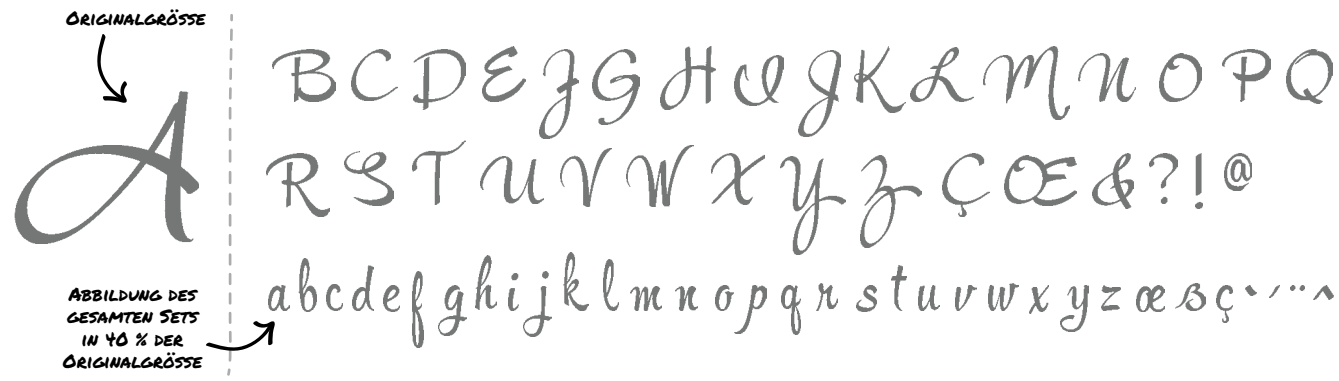 ORIGINALGRÖSSE
A
ABBILDUNG DES
GESAMTEN SETS
IN 40 % DER
ORIGINALGRÖSSE
B C D E F G H I J K L M N O P Q
R S T U V W X Y Z Ç Œ & ? ! @
a b c d e f g h i j k l m n o p q r s t u v w x y z œ ß ç ` ´ ¨ ^